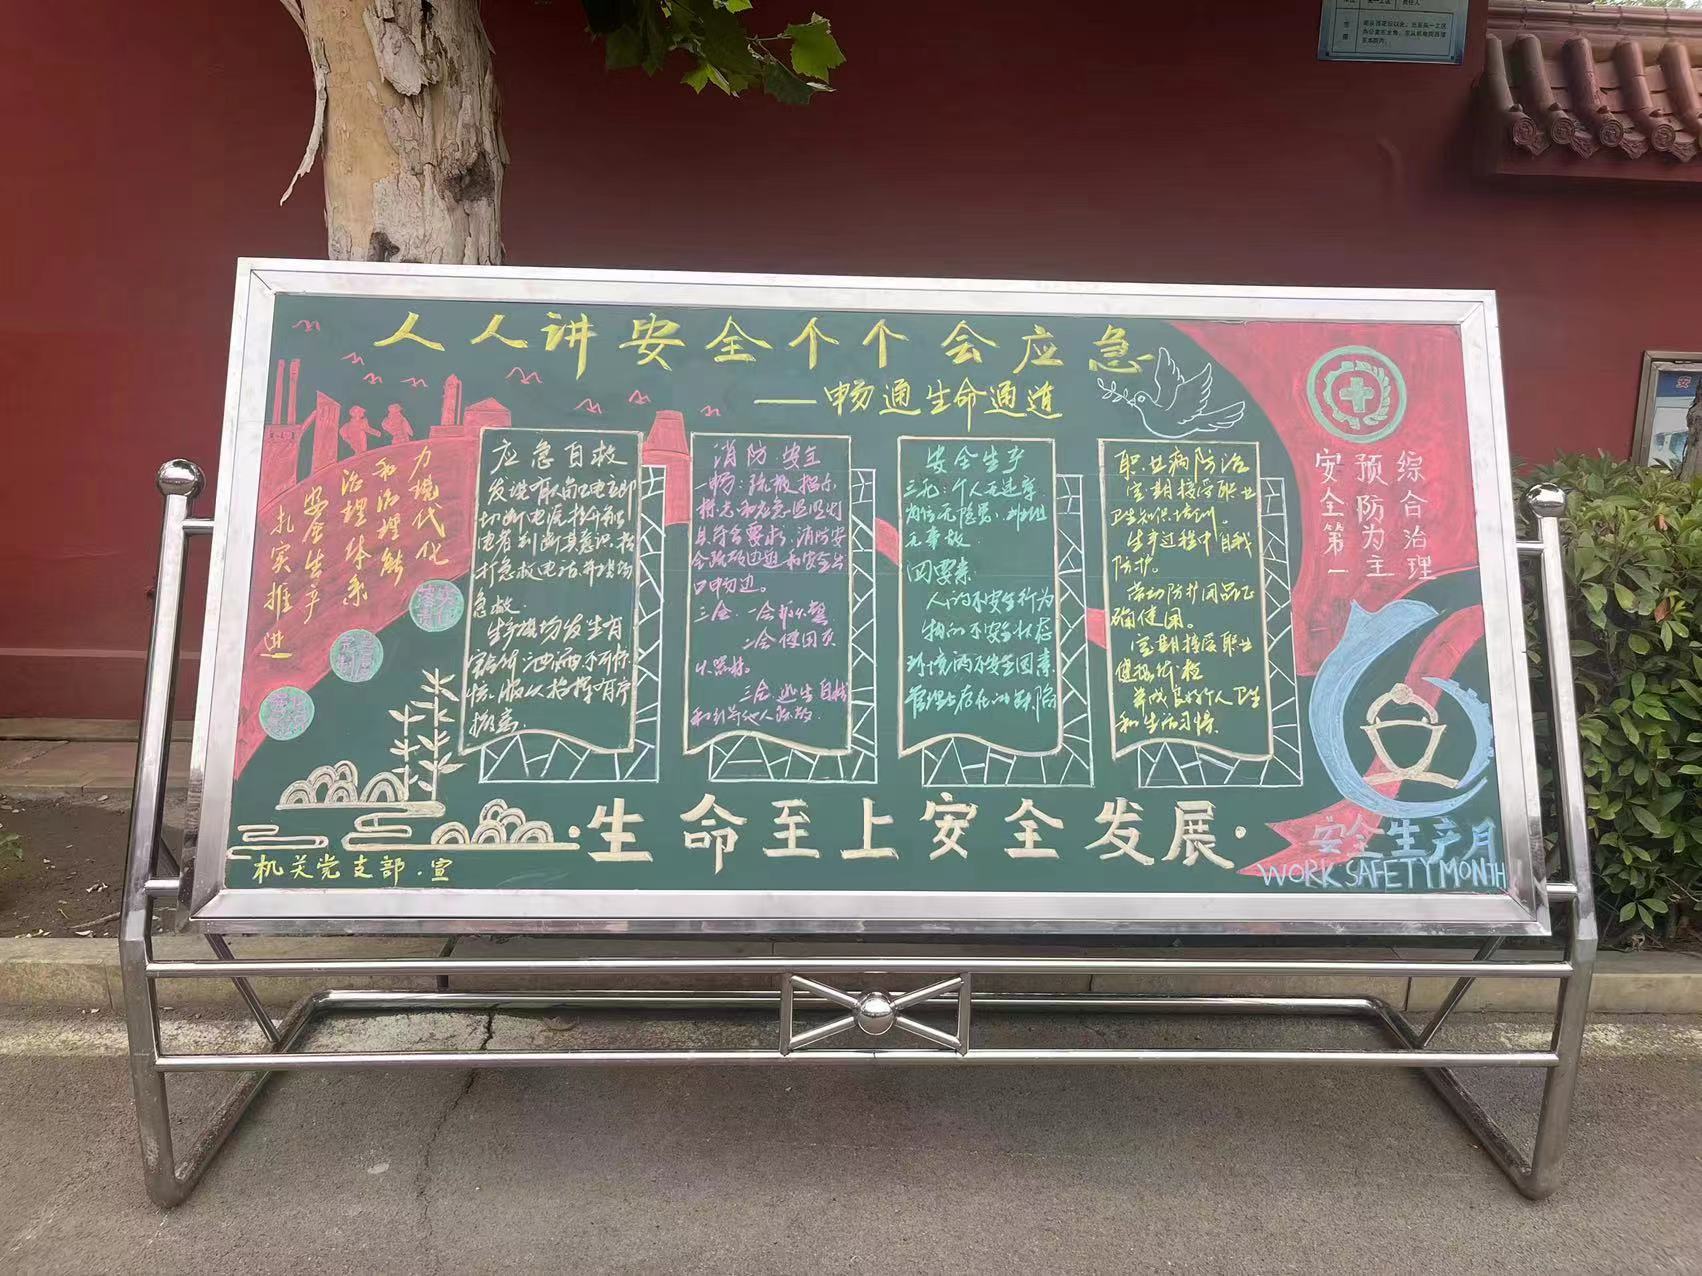 人人讲安全个个会应急
——畅通生命通道
扎实推进
安全生产
治理体系
和治理能
力现代化
应急自救
发现有人触电立即
切断电源,
电者判断其意识,拨
打急救电话,并现场
急救.
生产现场发生有
害气体泄漏不可惊
慌,服从指挥有序
撤离.
消防安全
一畅:疏散指示
标志和应急照明灯
具符合要求,消防安
全疏散通道和安全出
口畅通.
三会:一会报火警
二会使用灭
火器材.
三会逃生自救
和引导他人疏散.
安全生产
三无:个人无违章
岗位无隐患,班组
无事故.
四要素
人的不安全行为
物的不安全状态
环境的不安全因素
管理上存在的缺陷
职业病防治
定期接受职业
卫生知识培训.
生产过程中自我
防护.
劳动防护用品正
确使用。
定期接受职业
健康体检
养成良好个人卫生
和生活习惯.
综合治理
预防为主
安全第一
·生命至上安全发展·
机关党支部.宣
安全生产月
WORK SAFETY MONTH